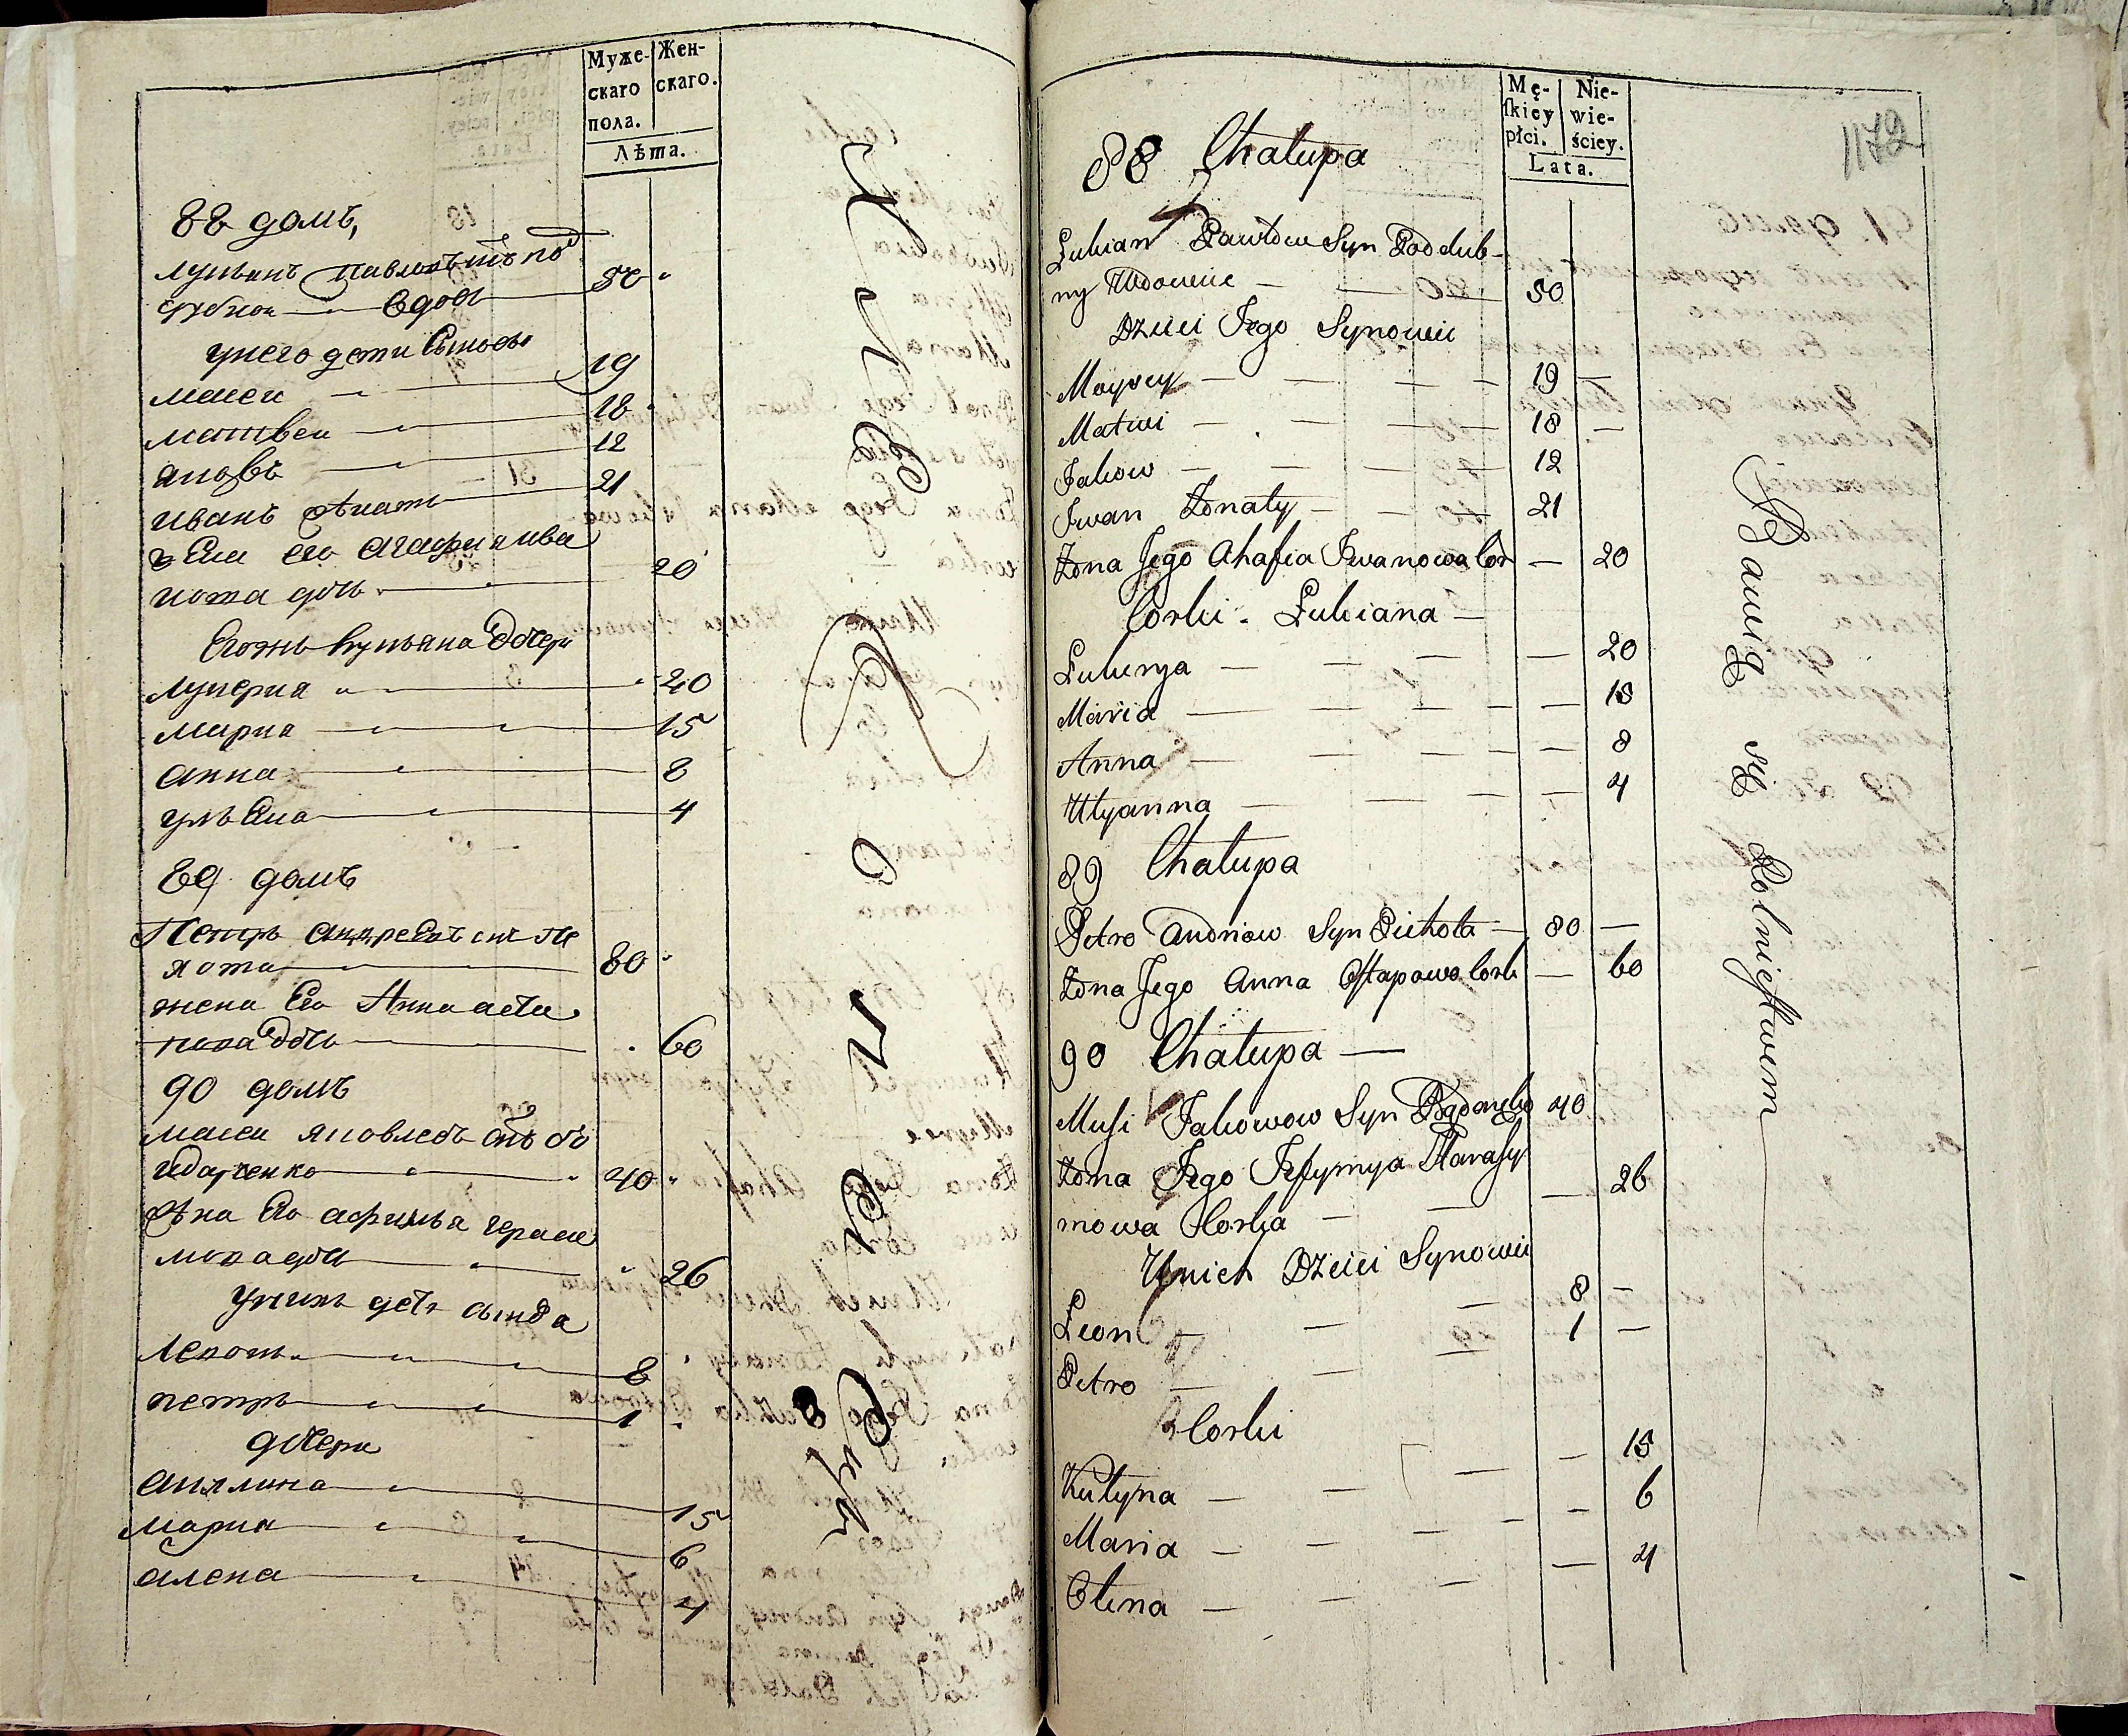 Муже-
скаго
пола.
Жен-
скаго.
Лѣта.
88 домъ,
лукьянъ павловъ сынъ под
дубной вдовъ 50
унего дети Сыновья
мосеи 19
матвеи 18
яковъ 12
иванъ женатъ 21
жена его агафия ива
нова дочь 20
Егожъ лукьяна дочери
лукерия 20
мария 15
анна 8
ульяна 4
89 домъ
Петръ андреевъ снъ пе
хота 80
жена Его Анна аста
пова дочь 60
90 домъ
мосеи яковлевъ снъ бо
идаченко 40
жена Его афимья гераси
мова дочь 26
унихъ дети сынова
левонъ 8
петръ 1
дочери
акилина 15
мария 6
алена 4
Mę-
ſkiey
płci.
Nie-
wie-
ściey.
Lata.
1172
88 Chałupa
Łukian Pawłow Syn Poddub-
ny Wdowiec 50
Dzieci Jego Synowie
Moysey 19
Matwi 18
Jakow 12
Iwan Żonaty 21
Żona Jego Ahafia Iwanowa Cor 20
Corki Łukiana
Łukirya 20
Maria 15
Anna 8
Ulyanna 4
89 Chałupa
Petro Andriow Syn Piechota 80
Żona Jego Anna Ostapowa Cork 60
90 Chałupa
Musi Jakowow Syn 40
Żona Jego Jefymya Harasy
mowa Corka 26
Unich Dzieci Synowie
Leon 8
Petro 1
Corki
Kulyna 15
Maria 6
Olena 4
Bawią Się Rolnictwem